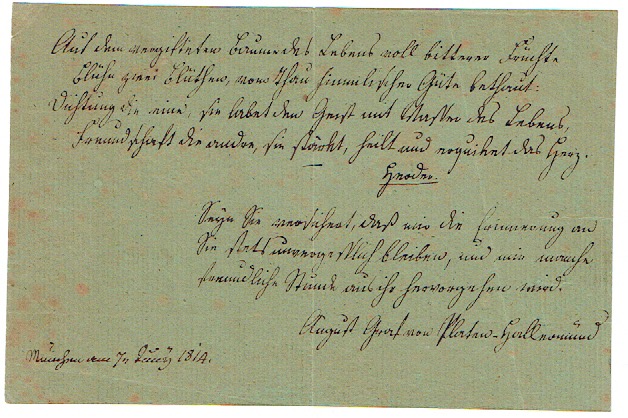 Auf dem vergifteten Baume des Lebens voll bitterer Früchte
Blühn zwei Blüthen, vom Thau himmlischer Güte bethaut:
Dichtung die eine, sie labet den Geist mit Wasser des Lebens,
Freundschaft die andre, sie stärket, heilt und erquicket das Herz.
Herder.
Seyn Sie versichert, daß mir die Erinnerung an
Sie stets unvergeßlich bleiben, und mir manche
freundliche Stunde aus ihr hervorgehen wird.
August Graf von Platen-Hallermünd
München am 7n Juny 1814.